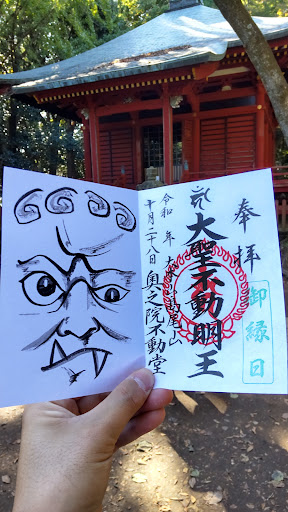 奉拝
御縁日
大聖不動明王
令和 年
十月二十八日
高尾山
奥之院不動堂